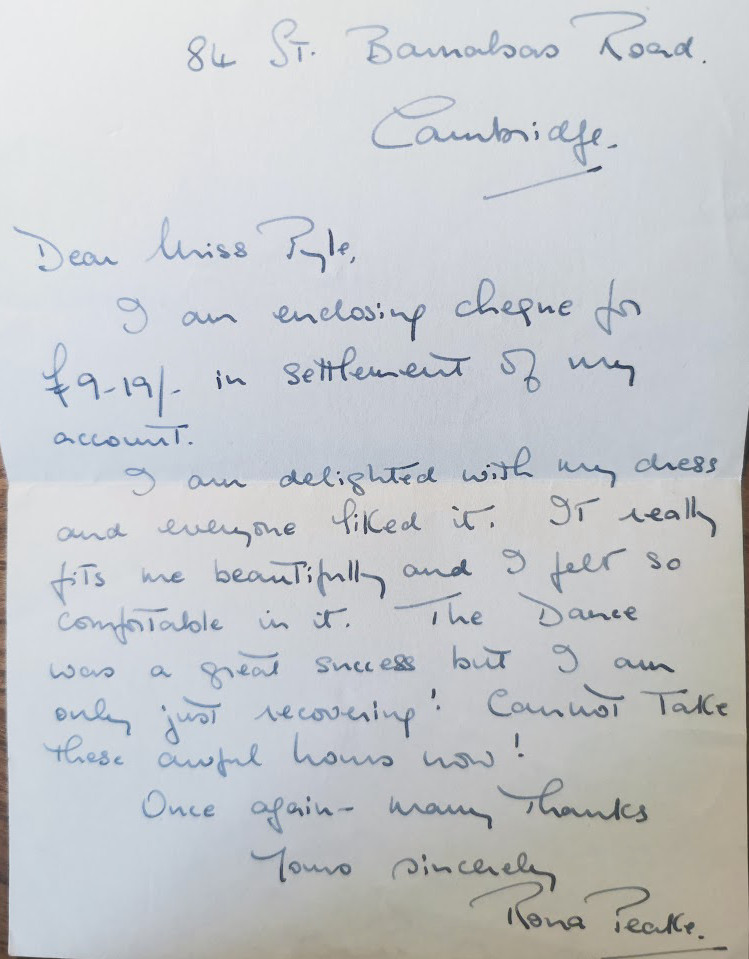 84 St. Barnabas Road.
Cambridge.
Dear Miss Pyle,
I am enclosing cheque for
£9-19/- in settlement of my
account.
I am delighted with my dress
and everyone liked it. It really
fits me beautifully and I felt so
comfortable in it. The Dance
was a great success but I am
only just recovering! Cannot Take
these awful hours now!
Once again- many Thanks
Yours sincerely
Rona Peake.